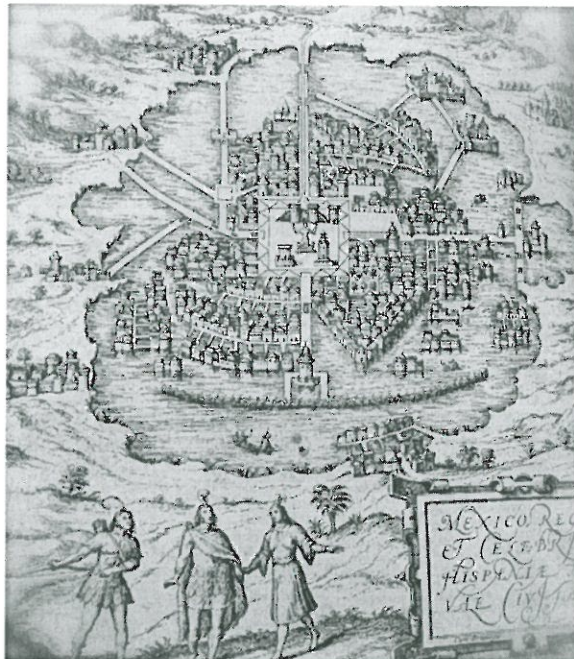 MEXICO, REG
ET CELEBRI
HISPANIAE
VAE CIVI